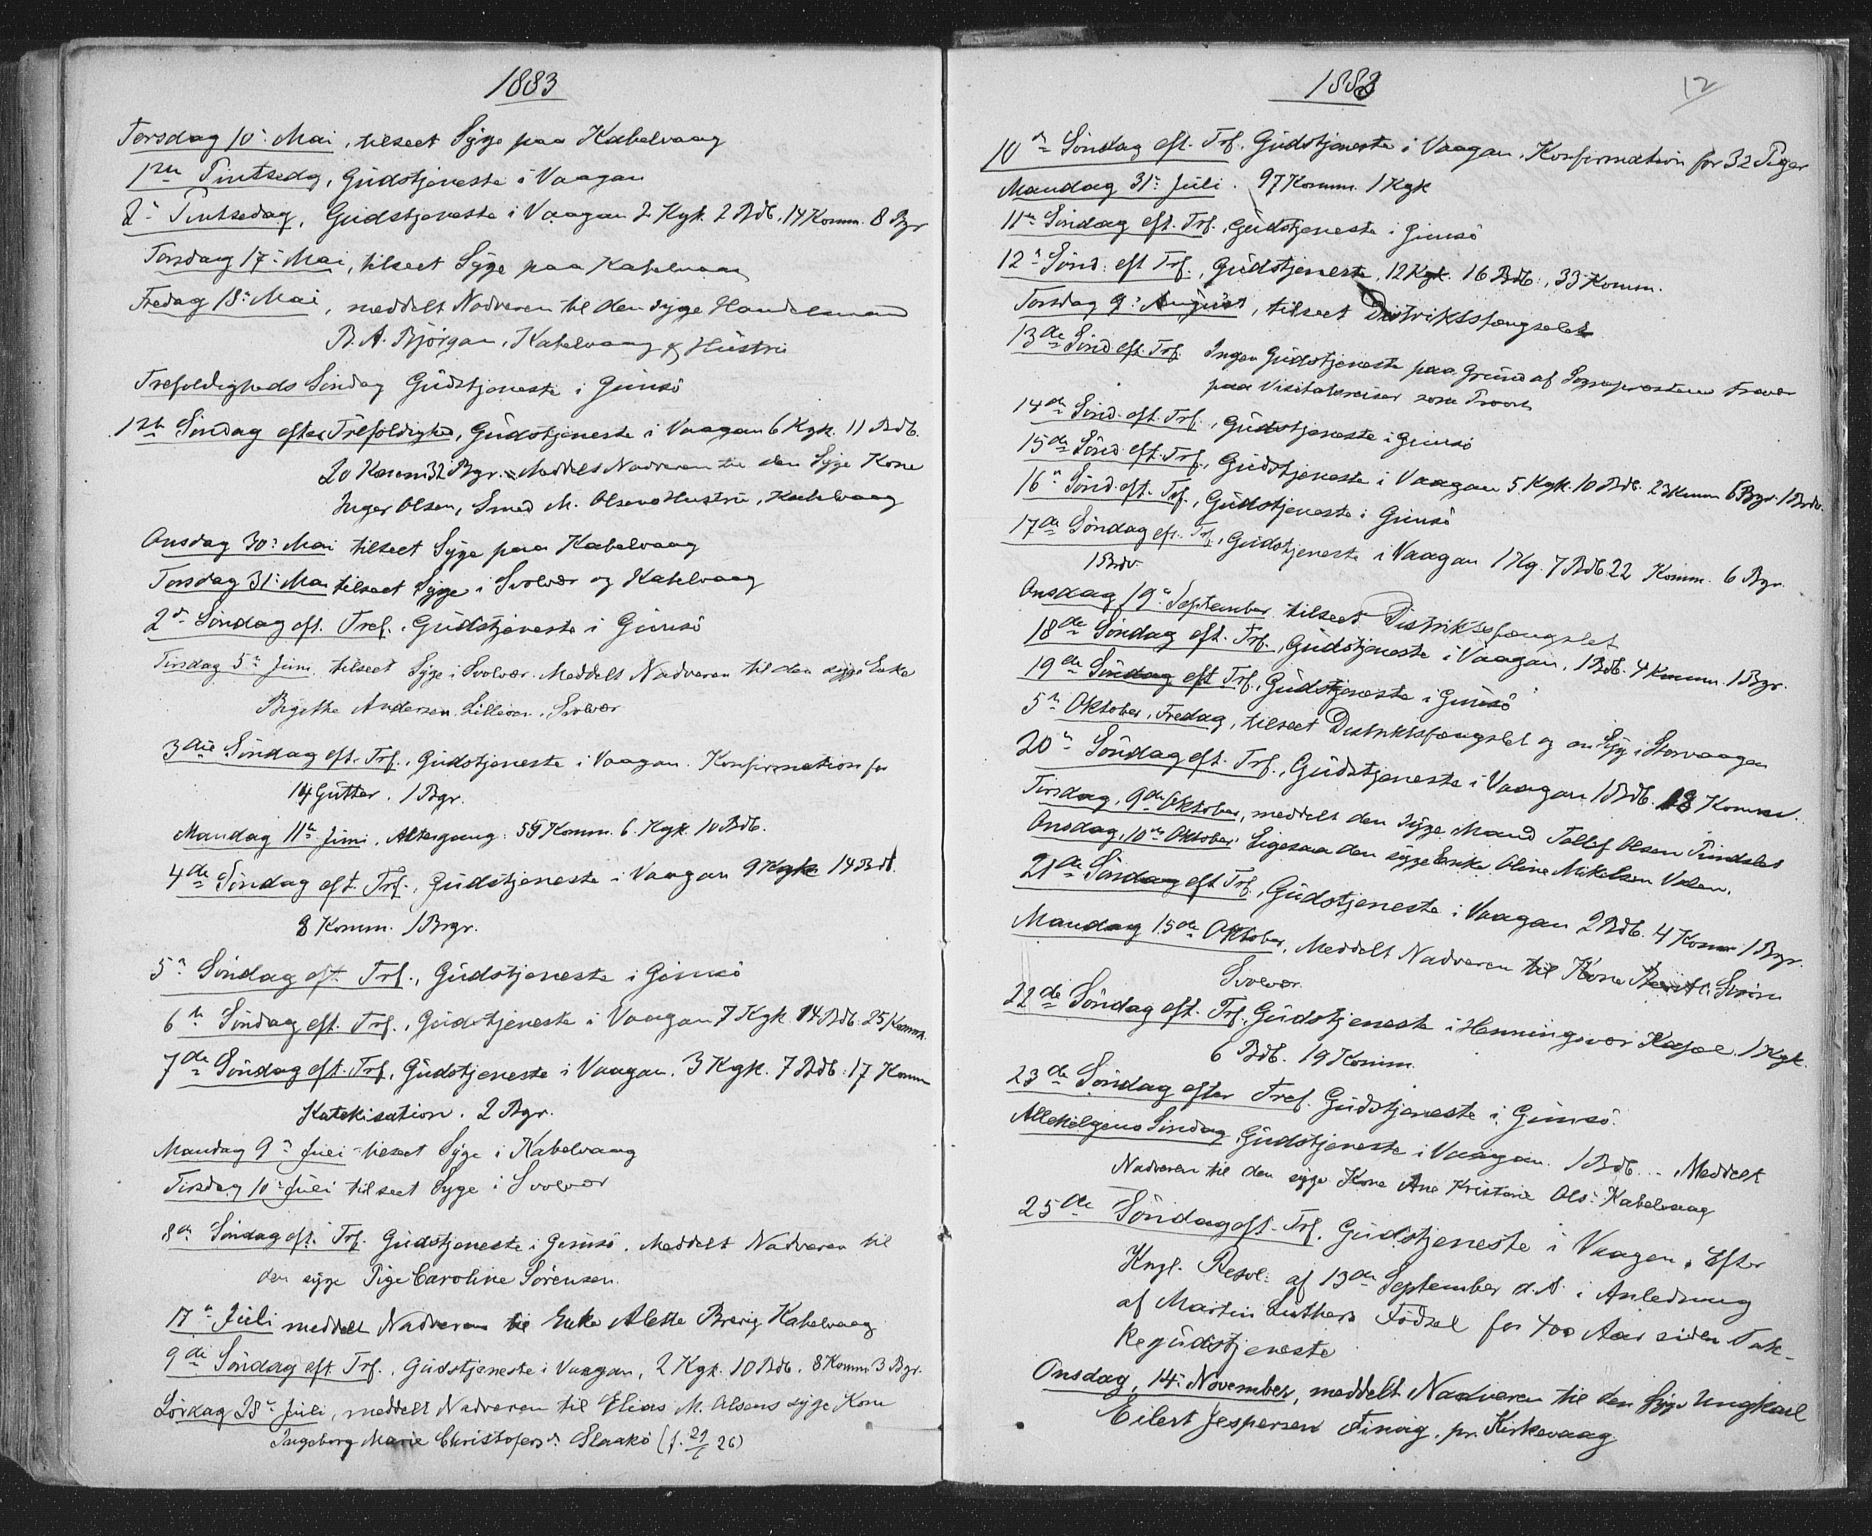 1883
Torsdag 10. Mai, tilseet Syge paa Kabelvaag
1ste Pintsedg, Gudstjeneste i Vaagan
2. Pintsedag, Gudstjeneste i Vaagan 2 Kgk. 2 Bdb. 14 Komm. 8 Bgr
Torsdag 17. Mai, tilseet Syge paa Kabelvaag
Fredag 18. Mai, meddelt Nadveren til den syge Handelsmand
B. A. Björgan, Kabelvaag & Hustru
Trefoldigheds Söndag Gudstjeneste i Gimsö
1ste Söndag efter Trefoldighed, Gudstjeneste i Vaagan 6 Kgk. 11 Bdb.
20 Komm 32 Bgr. Meddelt Nadveren til den Syge Kone
Inger Olsen, Smed M. Olsens Hustru, Kabelvaag
Onsdag 30. Mai tilseet Syge paa Kabelvaag
Torsdag 31. Mai tilseet Syge i Svolvær og Kabelvaag
2den Söndag eft. Tref. Gudstjeneste i Gimsö
Tirsdag 5te Juni tilseet Syge i Svolvær. Meddelt Nadveren til den syge Enke
Birgithe Andersen, Svolvær
3die Söndag eft. Trf., Gudstjeneste i Vaagan. Konfirmation for
14 Gutter. 1 Bgr.
Mandag 11te Juni, Altergang: 59 Komm. 6 Kgk. 10 Bdb.
4de Söndag eft. Trf., Gudstjeneste i Vaagan 9 Kgk 14 Bdb.
8 Komm. 1 Brgr.
5te Söndag eft. Trf., Gudstjeneste i Gimsö
6te Söndag eft. Trf., Gudstjeneste i Vaagan 7 Kgk. 14 Bdb. 25 Komm.
7de Söndag eft. Trf., Gudstjeneste i Vaagan. 3 Kgk. 7 Bdb. 17 Komm
Katekisation. 2 Bgr.
Mandag 9de Juli tilseet Syge i Kabelvaag
Tirsdag 10de Juli tilseet Syge i Svolvær
8de Söndag eft. Trf. Gudstjeneste i Gimsö. Meddelt Nadveren til
den syge Pige Caroline Sörensen.
17de Juli meddelt Nadveren til Enke Alette Brevig Kabelvaag
9de Söndag eft. Trf., Gudstjeneste i Vaagan, 2 Kgk. 10 Bdb. 8 Komm 3 Bgr.
Lördag 28de Juli, meddelt Nadveren til Elias M. Olsens syge Kone
Ingeborg Marie Christofersdr. (f. 29/ 26)
1883
12
10de Söndag eft. Trf. Gudstjeneste i Vaagan. Konfirmation for 32 Piger
Mandag 31. Juli. 97 Komm. 1 Kgk
11te Söndag eft. Trf., Gudstjeneste i Gimsö
12te Sönd. eft Trf., Gudstjeneste, 12 Kgk. 16 Bdb., 33 Komm.
Torsdag 9. August, tilseet Distriktsfængselet
13de Sönd eft. Trf. Ingen Gudstjeneste paa Grund af Sogneprestens Fravær
paa Visitatsreiser som Provst
14de Sönd. eft. Trf., Gudstjeneste i Gimsö
15de Sönd eft. Trf., Gudstjeneste i Vaagan 5 Kgk. 10 Bdb. 23 Komm 6 Bgr. 1 Brdv.
16de Sönd. eft. Trf., Gudstjeneste i Gimsö
17de Söndag eft. Trf., Gudstjeneste i Vaagan 1 Kg. 7 Bdb 22 Komm. 6 Bgr.
1 Brdv
Onsdag 19de September tilseet Distriktsfængslet
18de Söndag eft. Trf., Gudstjeneste i Vaagan, 1 Bdb. 4 Komm. 1 Bgr.
19de Söndag eft Trf., Gudstjeneste i Gimsö
5te Oktober, Fredag, tilseet Distriktsfængslet og en Syg i Storvaagen
20de Söndag eft. Trf., Gudstjeneste i Vaagan 1 Bdb. 18 Komm.
Tirsdag, 9de Oktober, meddelt den syge Mand Tollef Olsen
Onsdag, 10de Oktober. Ligesaa den syge Enke Oline Mikelsen
21de Söndag eft Trf., Gudstjeneste i Vaagan 2 Bdb. 4 Komm 1 Bgr.
Mandag 15de Oktober, Meddelt Nadveren til Kone
Svolvær
22de Söndag eft. Trf. Gudstjeneste i Henningsvær Kapel. 1 Kgk.
6 Bdb. 19 Komm.
23de Söndag efter Tref. Gudstjeneste i Gimsö.
Allehelgens Söndag, Gudstjeneste i Vaagan. 1 Bdb. – Meddelt
Nadveren til den syge Kone Ane Kristine Ols. Kabelvaag
25de Söndag eft. Trf. Gudstjeneste i Vaagen. Efter
Kngl. Resol. af 13de September d.A. i Anledning
af Martin Luthers Födsel for 400 Aar siden Tak-
kegudstjeneste
Onsdag, 14. November, meddelt Nadveren til den syge Ungkarl
Eilert Jespersen Finvig, pr. Kirkevaag